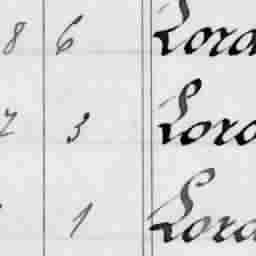 8 6 Lord
2 3 Lord
1 Lord